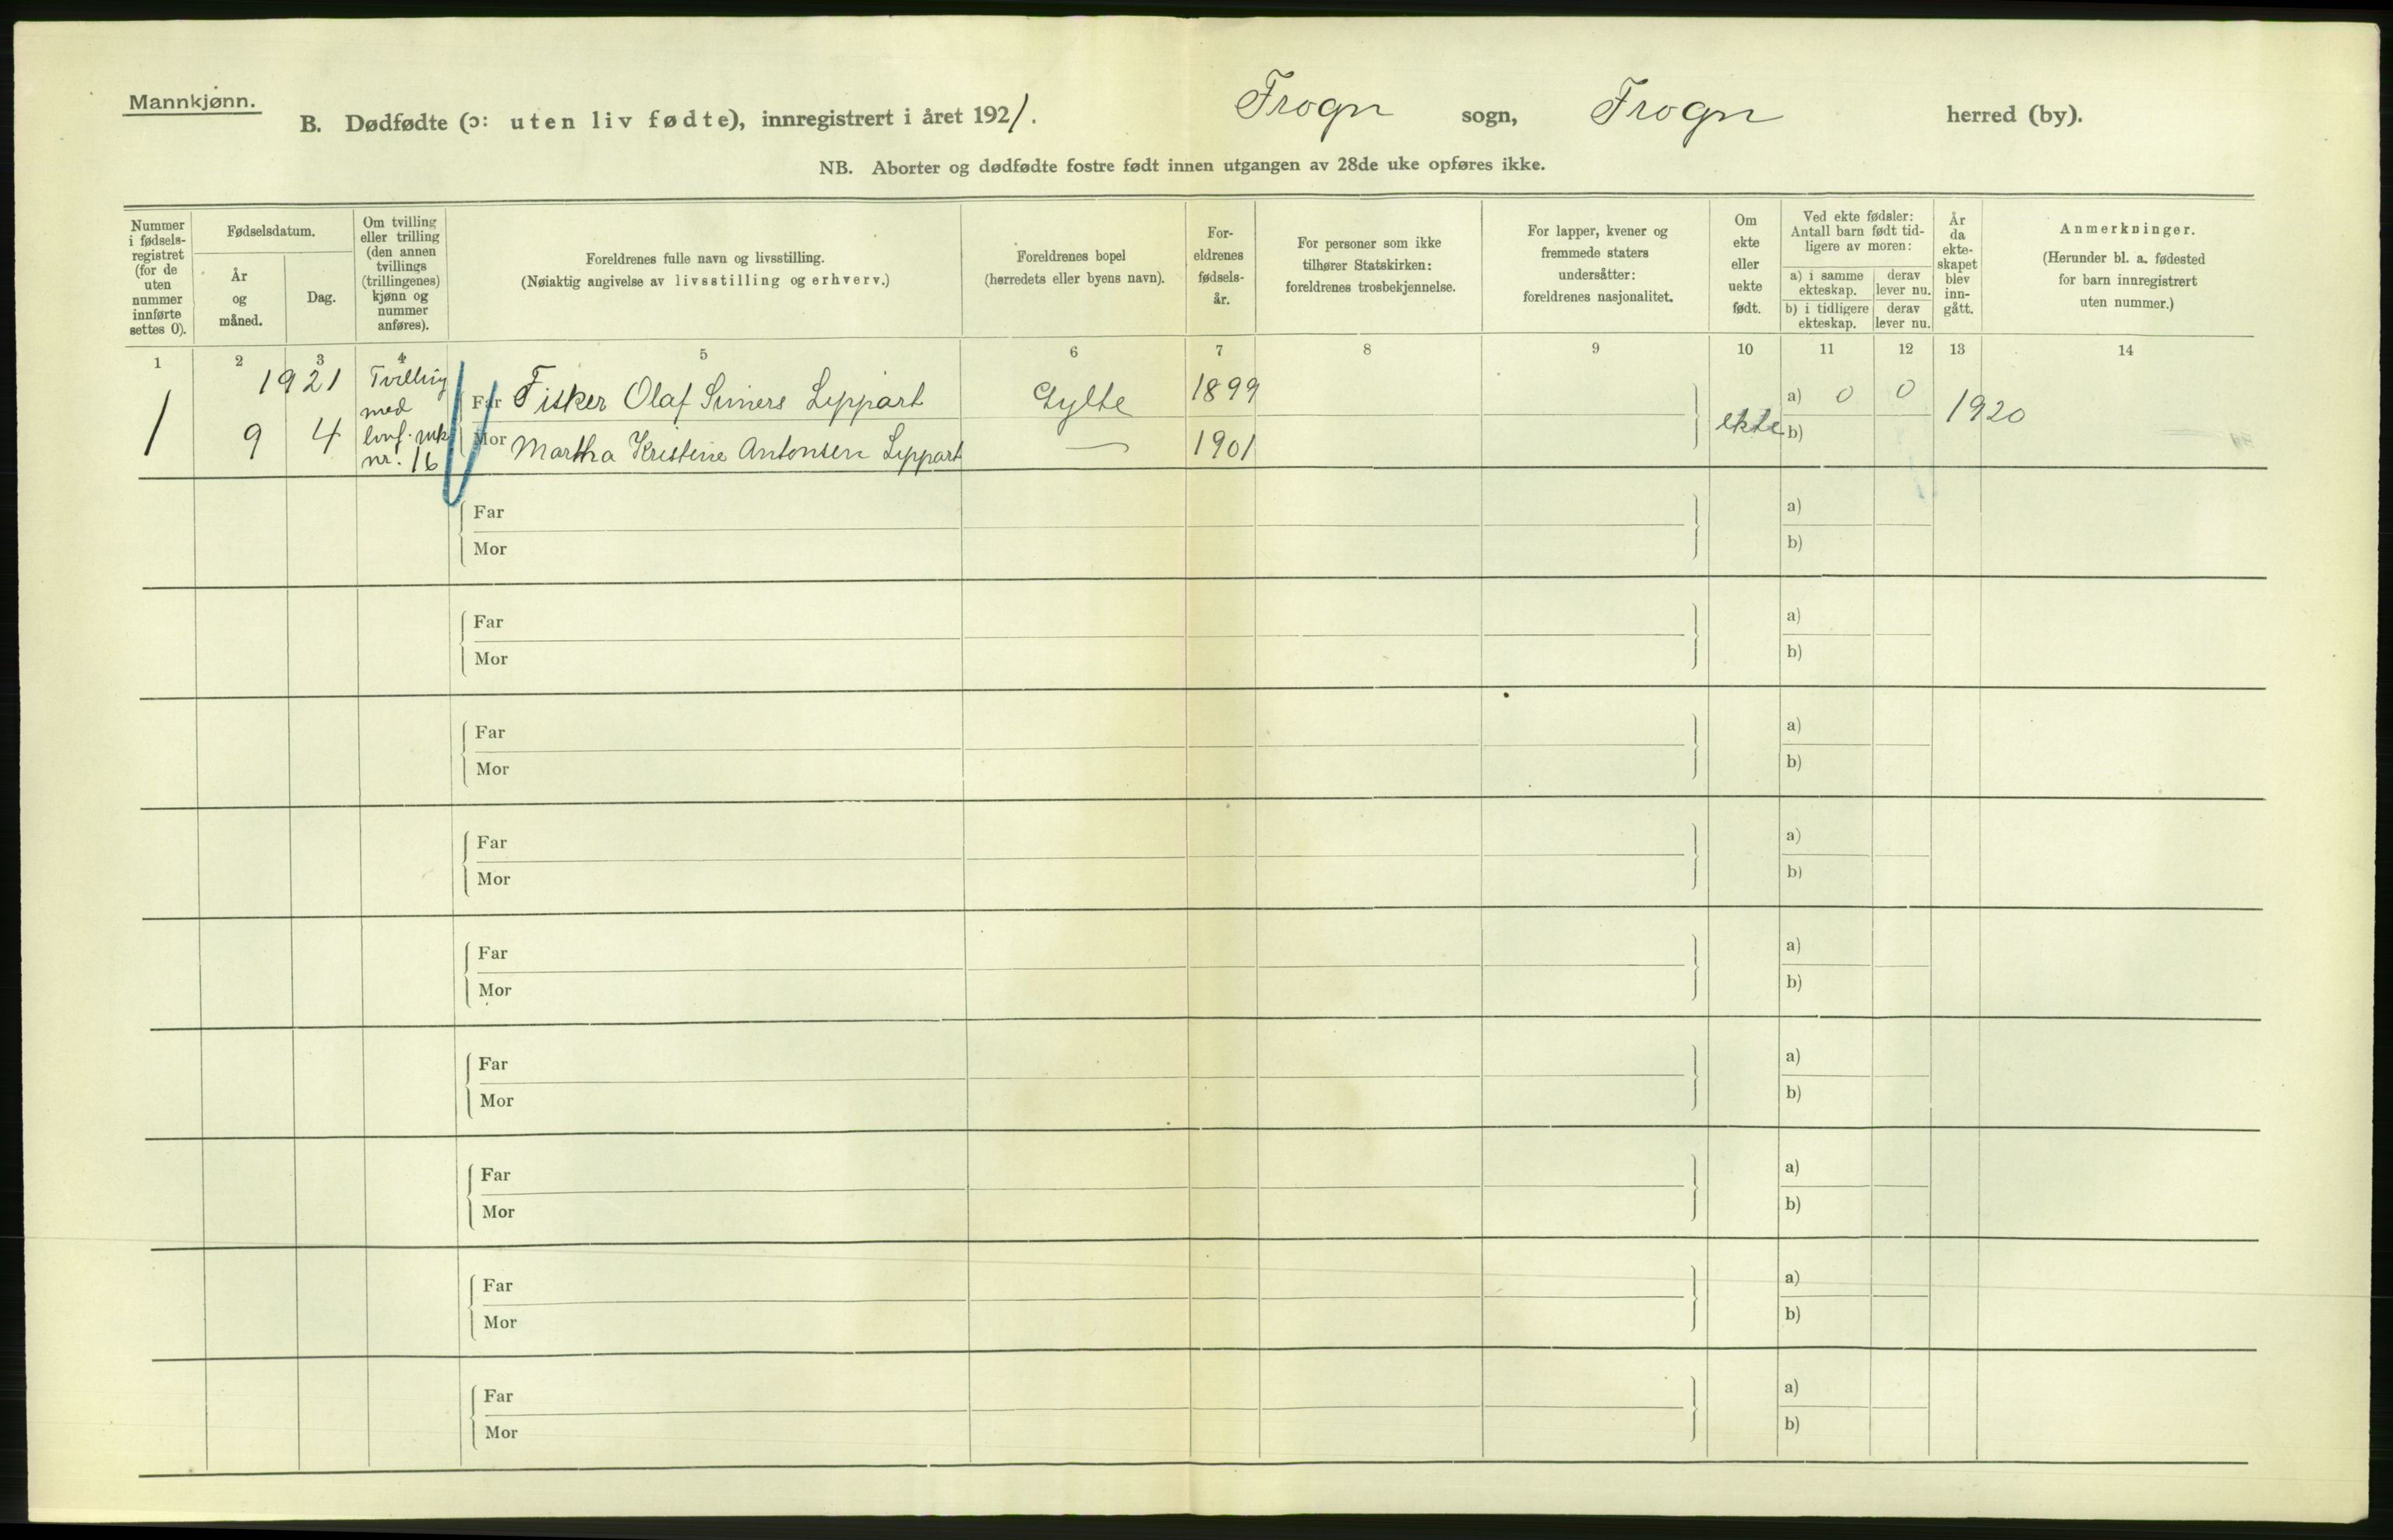 Mannkjønn.
B. Dødfødte (ɔ: uten liv fødte), innregistrert i året 1921. Frogn sogn, Frogn herred (by).
NB. Aborter og dødfødte fostre født innen utgangen av 28de uke opføres ikke.
Nummer i fødsels-registret (for de uten nummer innførte settes 0).
Fødselsdatum.
År og måned.
Dag.
Om tvilling eller trilling (den annen tvillings (trillingenes) kjønn og nummer anføres).
Foreldrenes fulle navn og livsstilling.
(Nøiaktig angivelse av livsstilling og erhverv.)
Foreldrenes bopel
(herredets eller byens navn).
For-eldrenes fødsels-år.
For personer som ikke tilhører Statskirken: foreldrenes trosbekjennelse.
For lapper, kvener og fremmede staters undersåtter: foreldrenes nasjonalitet.
Om ekte eller uekte født.
Ved ekte fødsler: Antall barn født tid-ligere av moren:
a) i samme ekteskap.
derav lever nu.
b) i tidligere ekteskap.
derav lever nu.
År da ekte-skapet blev inn-gått.
Anmerkninger.
(Herunder bl. a. fødested for barn innregistrert uten nummer.)
1 2 3 4 5 6 7 8 9 10 11 12 13 14
1921 Tvilling
Far Fisker Olaf Leppart Gylte 1899 a) 0 0
1 9 4 med nr. 16 ekte 1920
Mor Martha Kristine Antonsen Leppart — 1901 b)
Far a)
Mor b)
Far a)
Mor b)
Far a)
Mor b)
Far a)
Mor b)
Far a)
Mor b)
Far a)
Mor b)
Far a)
Mor b)
Far a)
Mor b)
Far a)
Mor b)